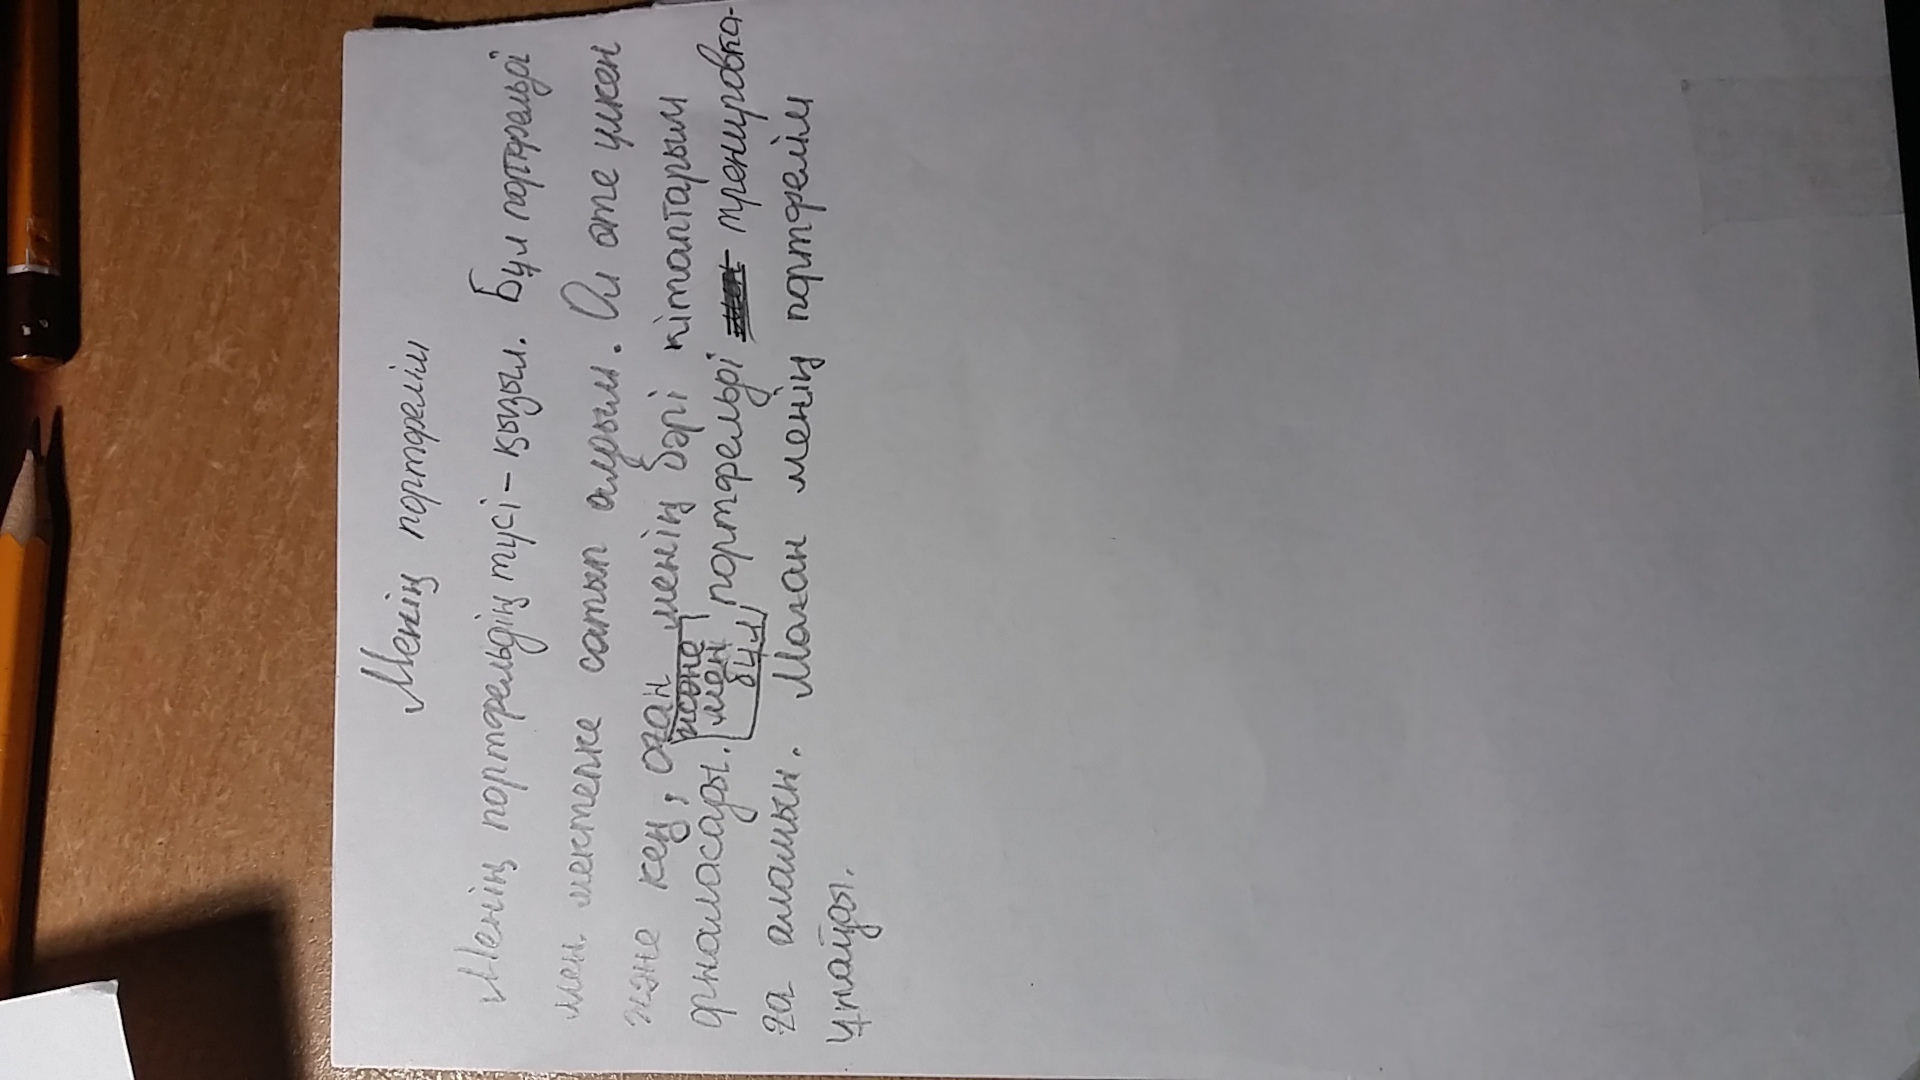 Менің портфелім
Менің портфельдің түсі - қызыл. Бұл портфельді
мен мектепке сатып алдым. Ол өте үлкен
және кең, оған менің бәрі кітаптарым
орналасады. және мен бұл портфельді тренировка-
ға аламын. Маған менің портфелім
ұнайды.